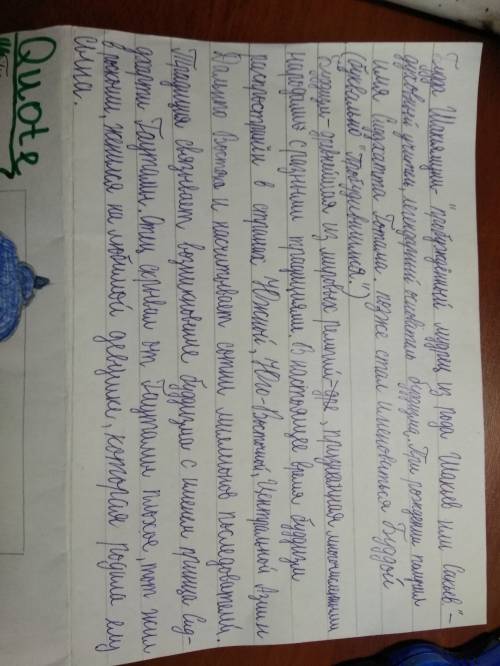 Будда Шакьямуни - "пробуждённый мудрец из рода Шакьев или Сакьев" -
духовный учитель, легендарный основатель буддизма. При рождении получил
имя Сиддхаттха Готама. позже стал именоваться Буддой
(буквально "Пробудившимся")
Буддизм - древнейшая из мировых религий, признанная многочисленными
народами с разными традициями. В настоящее время буддизм
распространён в странах Южной, Юго-Восточной, Центральной Азии и
Дальнего Востока и насчитывает сотни миллионов последователей.
Традиция связывает возникновение буддизма с именем принца Сид-
дхартхи Гаутамы. Отец скрывал от Гаутамы плохое, тот жил
в роскоши, женился на любимой девушке, которая родила ему
сына.
Quote